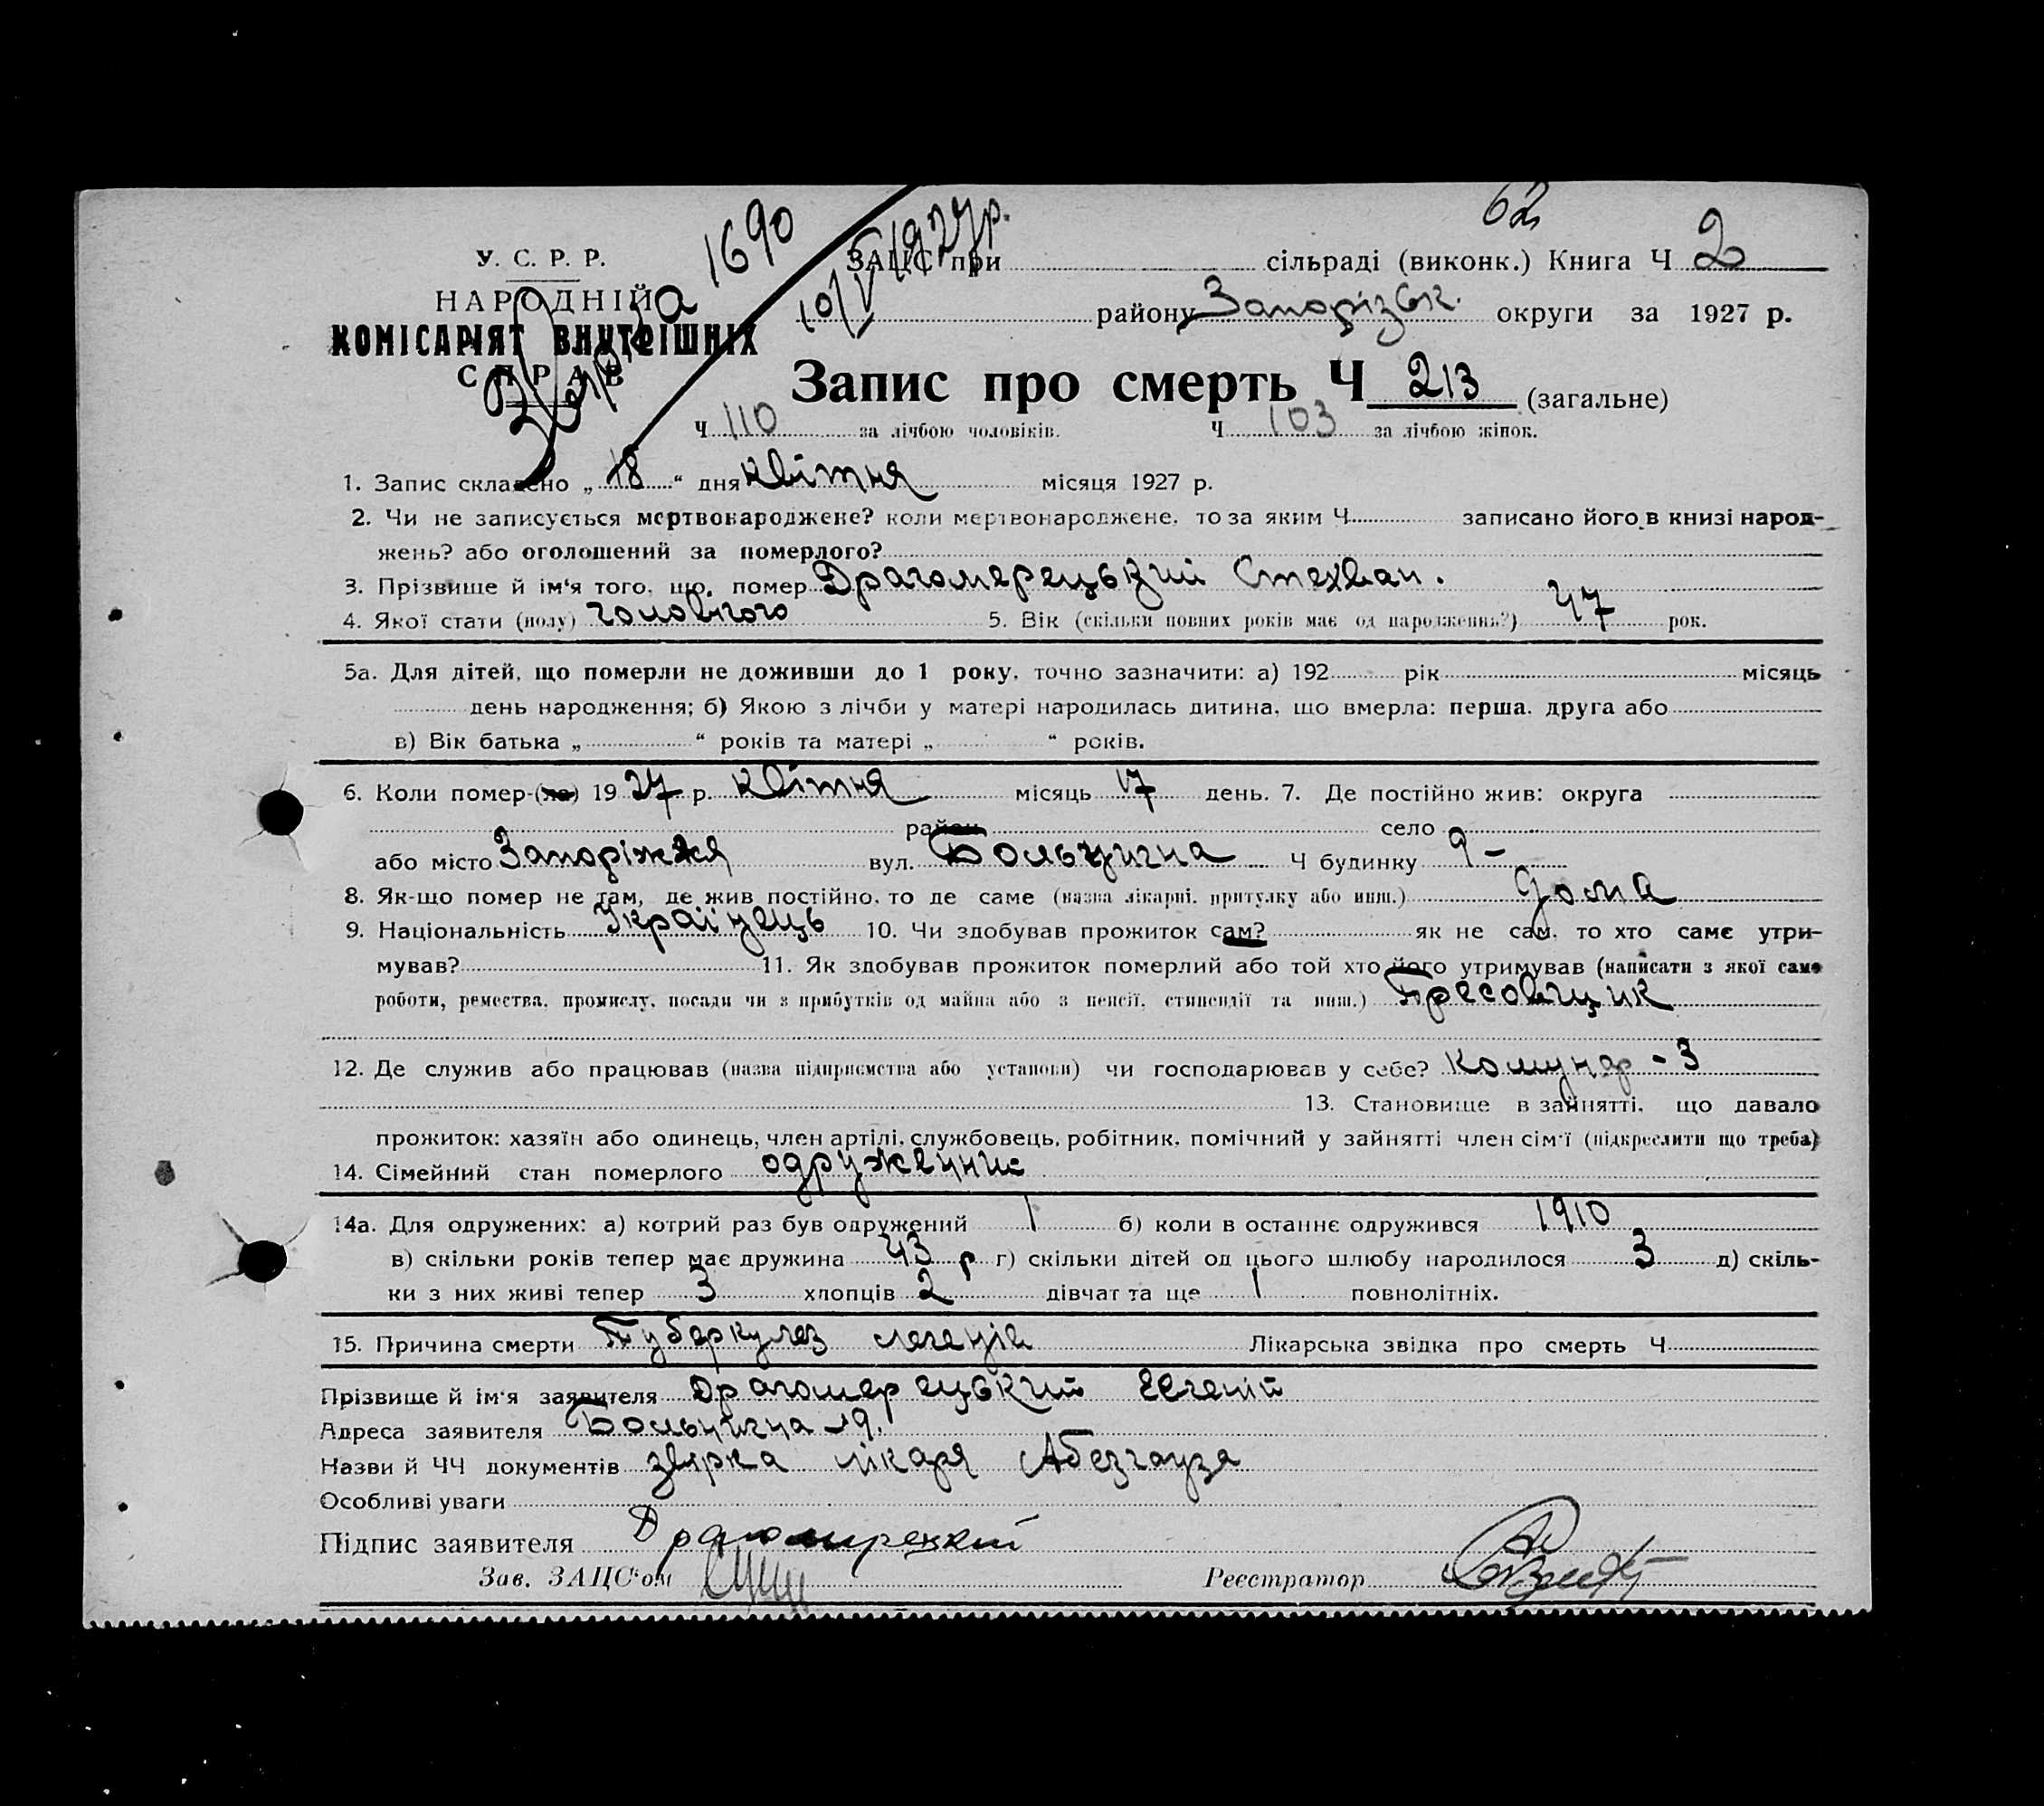 62
У. С. Р. Р.
НАРОДНІЙ
КОМІСАРІЯТ ВНУТРІШНІХ
СПРАВ
1690
10/V 1927р.
ЗАЦС при сільраді (виконк.) Книга Ч 2
району Запорізьк. округи за 1927 р.
Запис про смерть Ч 213 (загальне)
Ч 110 за лічбою чоловіків. Ч 103 за лічбою жінок.
1. Запис складено „ 18 “ дня квітня місяця 1927 р.
2. Чи не записується мертвонароджене? коли мертвонароджене, то за яким Ч записано його в книзі народ-
жень? або оголошений за померлого?
3. Прізвище й ім‘я того, що помер Драгомерецький Стехван.
4. Якої стати (полу) чоловічого 5. Вік (скільки повних років має од народження?) 47 рок.
5а. Для дітей, що померли не доживши до 1 року, точно зазначити: а) 192 рік місяць
день народження; б) Якою з лічби у матері народилась дитина, що вмерла: перша, друга або
в) Вік батька „ “ років та матері „ “ років.
6. Коли помер-(ла) 19 27 р. квітня місяць 17 день. 7. Де постійно жив: округа
район село
або місто Запоріжжя вул. Больнична Ч будинку 9 –
8. Як-що помер не там, де жив постійно, то де саме (назва лікарні, притулку або инш.) дома
9. Національність Українець 10. Чи здобував прожиток сам? як не сам, то хто саме утри-
мував? 11. Як здобував прожиток померлий або той хто його утримував (написати з якої саме
роботи, ремества, промислу, посади чи з прибутків од майна або з пенсії, стипендії та инш.) Пресовщик
12. Де служив або працював (назва підприємства або установи) чи господарював у себе? Комунар - 3
13. Становище в зайнятті, що давало
прожиток: хазяїн або одинець, член артілі, службовець, робітник, помічний у зайнятті член сім‘ї (підкреслити що треба)
14. Сімейний стан померлого одружений
14а. Для одружених: а) котрий раз був одружений 1 б) коли в останнє одружився 1910
в) скільки років тепер має дружина 43 р г) скільки дітей од цього шлюбу народилося 3 д) скіль-
ки з них живі тепер 3 хлопців 2 дівчат та ще 1 повнолітніх.
15. Причина смерти Туберкулез легенів Лікарська звідка про смерть Ч
Прізвище й ім‘я заявителя Драгомерецький Евгеній
Адреса заявителя Больнична 19.
Назви й ЧЧ документів звірка лікаря Абезгауза
Особливі уваги
Підпис заявителя Драгомирецкий
Зав. ЗАЦС‘ом Реєстратор